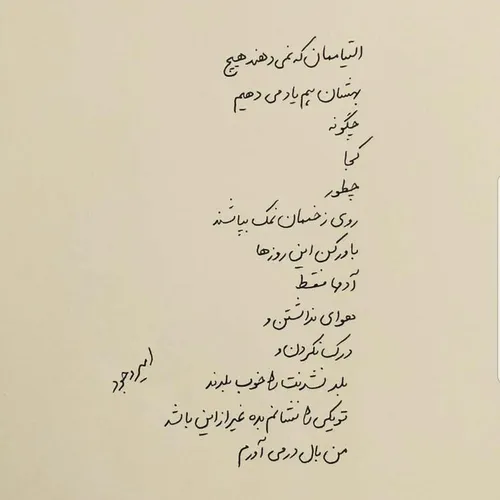 التیاممان که نمی دهند هیچ
بهشان هم یاد می دهیم
چگونه
کجا
چطور
روی زخممان نمک بپاشند
باور کن این روزها
آدمها فقط
هوای نداشتن و
درک نکردن و
بلد نشدنت را خوب بلدند
تو یکی را نشانم بده غیر از این باشد
من بال در می آورم
امیر وجود